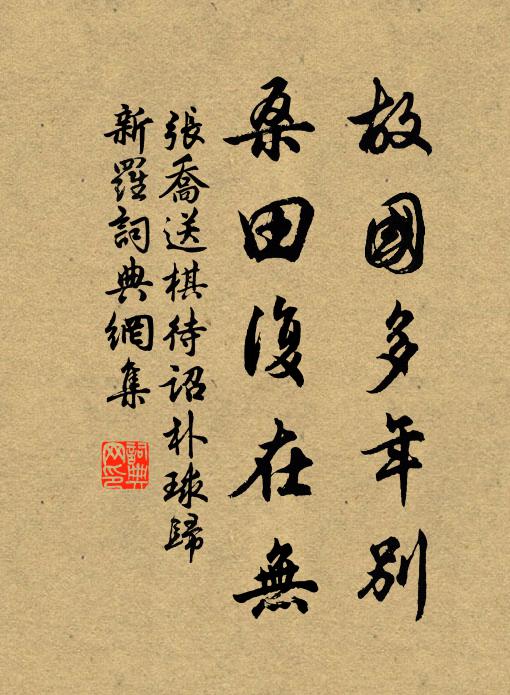 故國多年別
桑田復在無
張喬送棋待詔朴球歸
新羅詞典網集
詞典網印